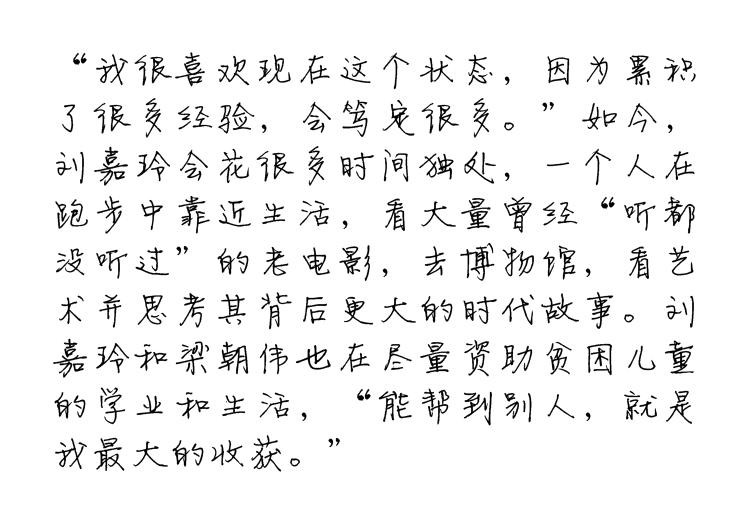 “我很喜欢现在这个状态，因为累积
了很多经验，会笃定很多。”如今，
刘嘉玲会花很多时间独处，一个人在
跑步中靠近生活，看大量曾经“听都
没听过”的老电影，去博物馆，看艺
术并思考其背后更大的时代故事。刘
嘉玲和梁朝伟也在尽量资助贫困儿童
的学业和生活，“能帮到别人，就是
我最大的收获。”